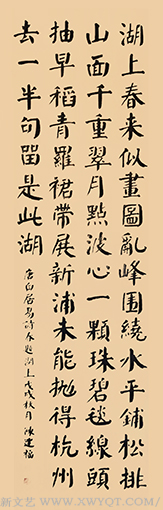 湖上春来似畫圖亂峰围繞水平鋪松排
山面千重翠月點波心一顆珠碧毯線頭
抽早稻青羅裙帶展新浦未能抛得杭州
去一半句留是此湖
唐白居易詩春題湖上戊戌秋月陳建福
新文艺 WWW.XWYQT.COM